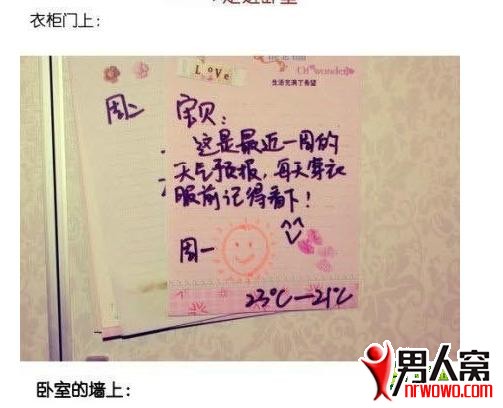 衣柜门上：
LoVe
生活充满了希望
周二
宝贝：
这是最近一周的
天气预报，每天穿衣
服前记得看下！
周一
23℃—21℃
男人窝
nrwowo.com
卧室的墙上：